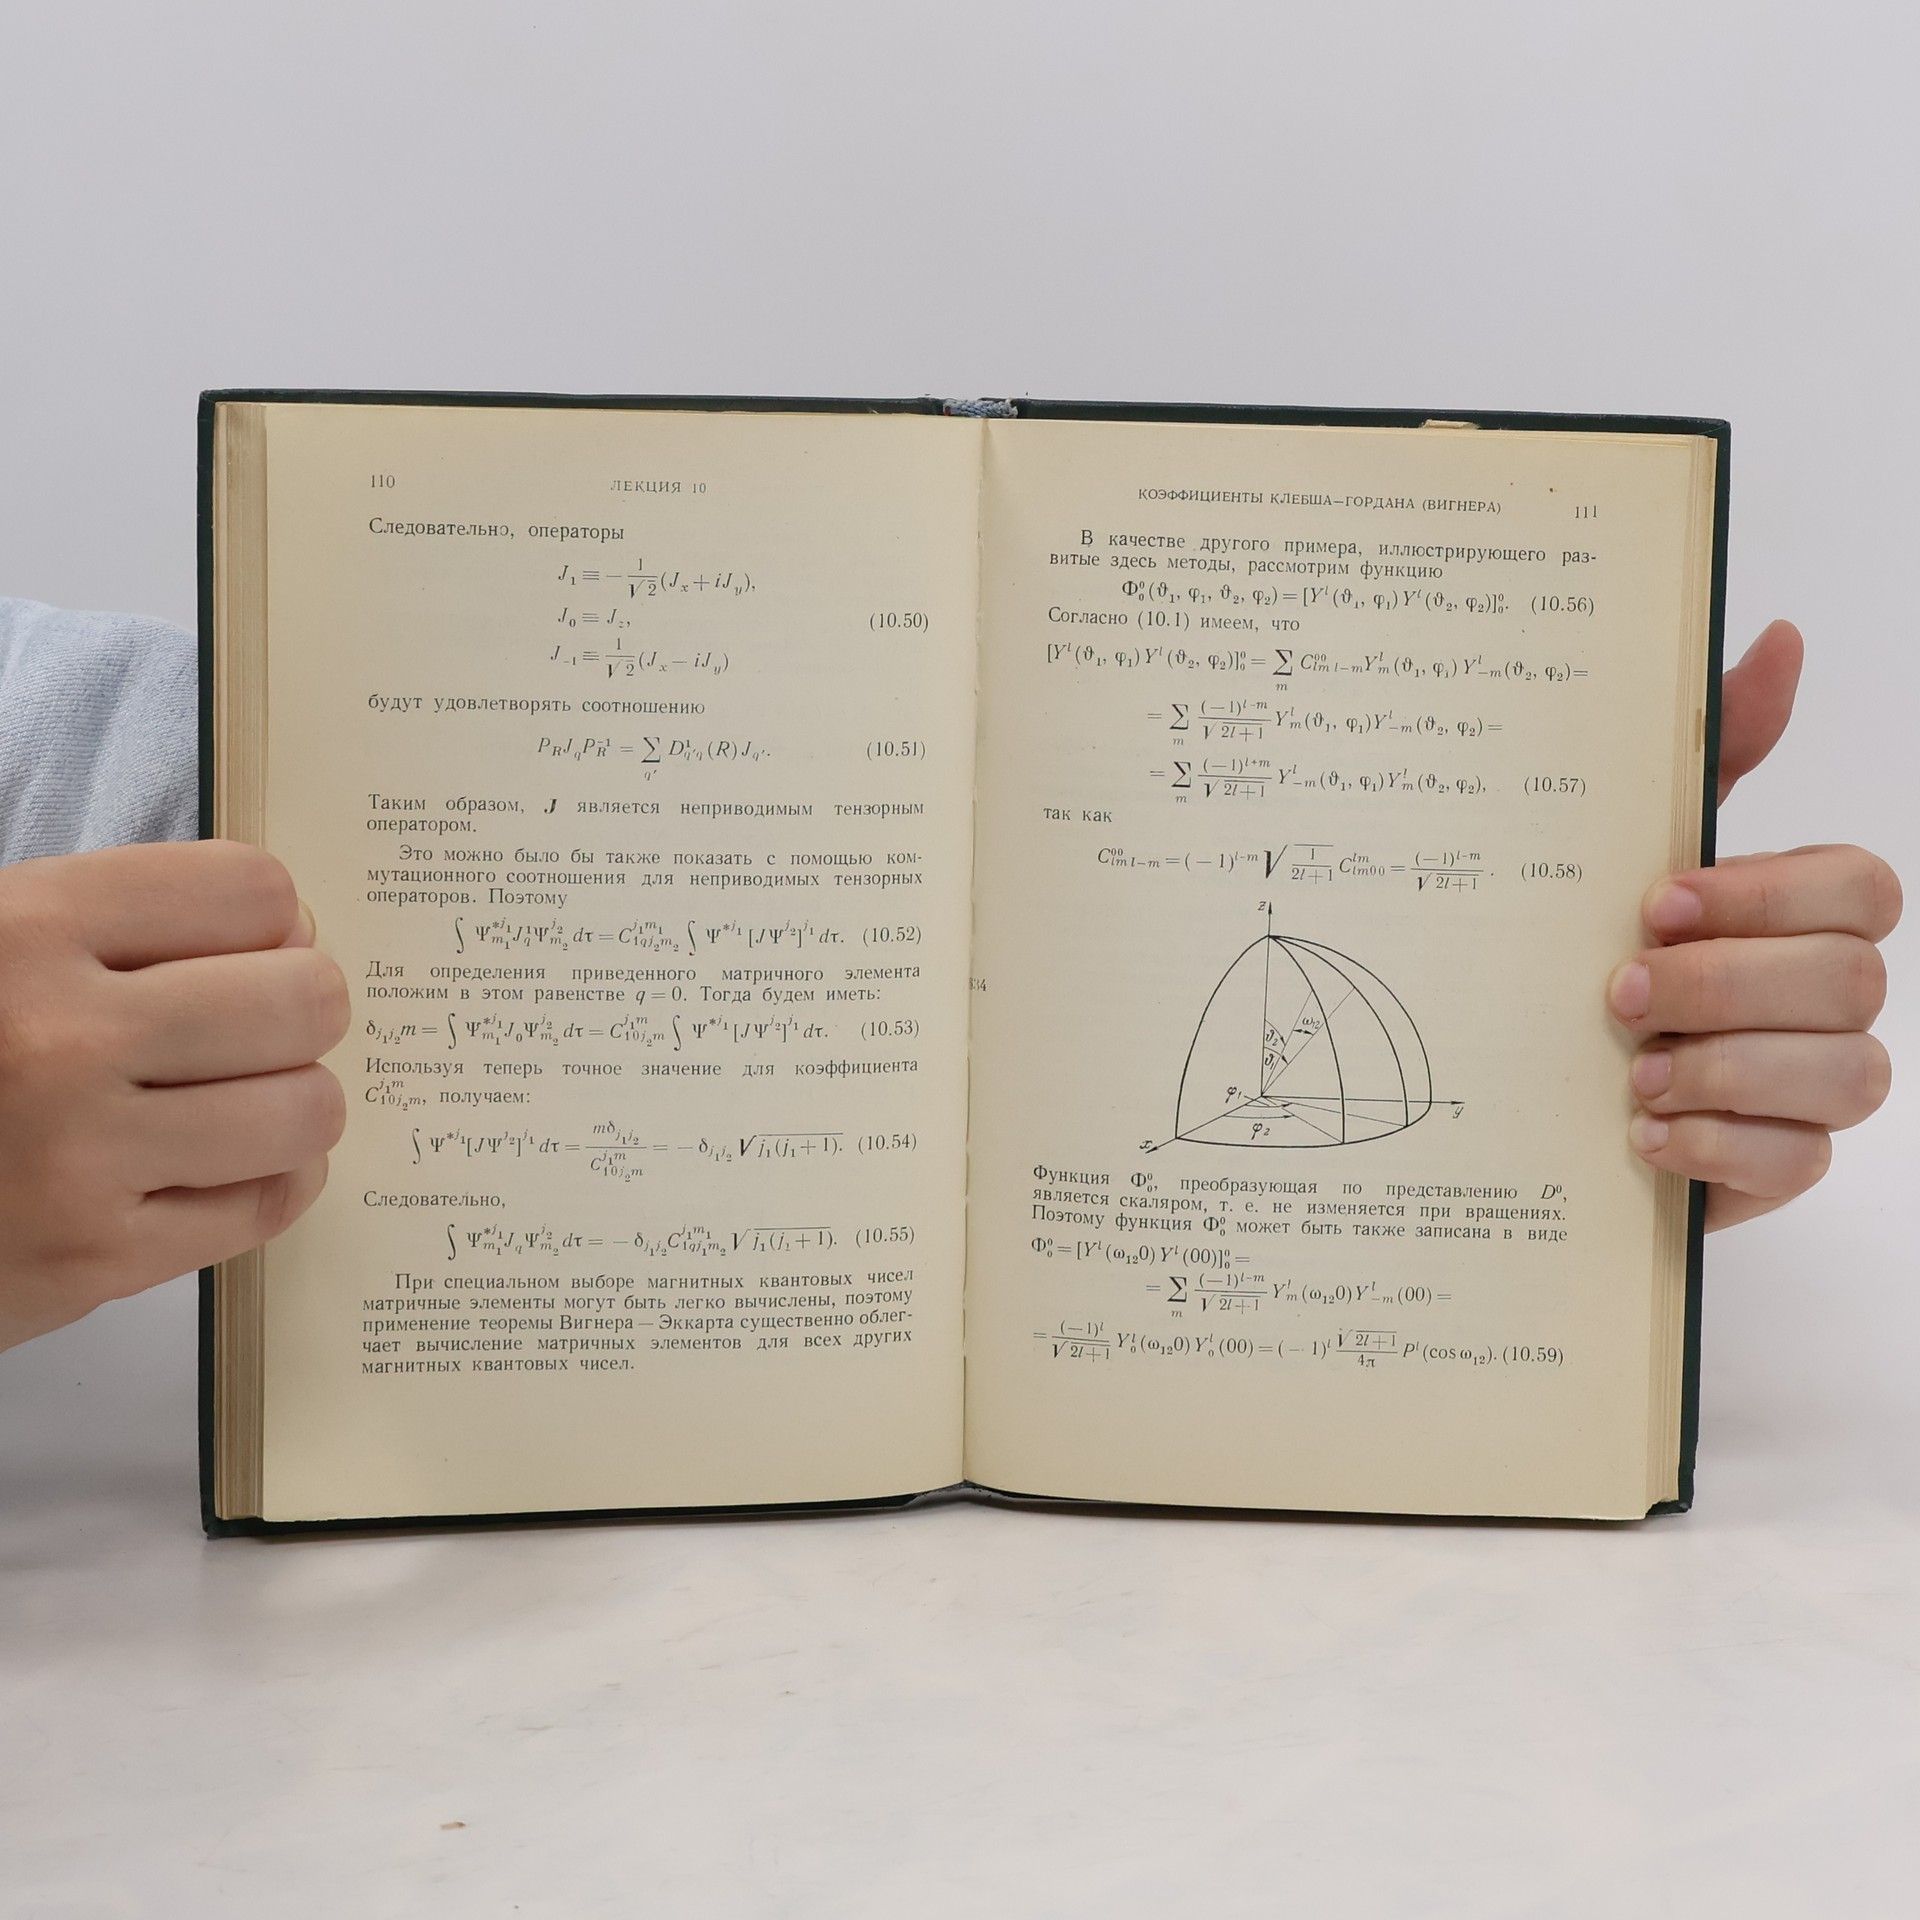 110
ЛЕКЦИЯ 10
Следовательно, операторы
J₁ ≡ − 1/√2 (Jₓ + iJ_y),
J₀ ≡ J_z, (10.50)
J₋₁ ≡ 1/√2 (Jₓ − iJ_y)
будут удовлетворять соотношению
P_R J_q P_R^{-1} = ∑_{q'} D^1_{q'q}(R) J_{q'}. (10.51)
Таким образом, J является неприводимым тензорным
оператором.
Это можно было бы также показать с помощью ком-
мутационного соотношения для неприводимых тензорных
операторов. Поэтому
∫ Ψ^{*j₁}_{m₁} J^1_q Ψ^{j₂}_{m₂} dτ = C^{j₁m₁}_{1qj₂m₂} ∫ Ψ^{*j₁} [JΨ^{j₂}]^{j₁} dτ. (10.52)
Для определения приведенного матричного элемента
положим в этом равенстве q = 0. Тогда будем иметь:
δ_{j₁j₂} m = ∫ Ψ^{*j₁}_{m₁} J₀ Ψ^{j₂}_{m₂} dτ = C^{j₁m}_{10j₂m} ∫ Ψ^{*j₁} [JΨ^{j₂}]^{j₁} dτ. (10.53)
Используя теперь точное значение для коэффициента
C^{j₁m}_{10j₂m}, получаем:
∫ Ψ^{*j₁} [JΨ^{j₂}]^{j₁} dτ = mδ_{j₁j₂} / C^{j₁m}_{10j₂m} = − δ_{j₁j₂} √j₁(j₁ + 1). (10.54)
Следовательно,
∫ Ψ^{*j₁}_{m₁} J_q Ψ^{j₂}_{m₂} dτ = − δ_{j₁j₂} C^{j₁m₁}_{1qj₁m₂} √j₁(j₁ + 1). (10.55)
При специальном выборе магнитных квантовых чисел
матричные элементы могут быть легко вычислены, поэтому
применение теоремы Вигнера — Эккарта существенно облег-
чает вычисление матричных элементов для всех других
магнитных квантовых чисел.
КОЭФФИЦИЕНТЫ КЛЕБША—ГОРДАНА (ВИГНЕРА)
111
В качестве другого примера, иллюстрирующего раз-
витые здесь методы, рассмотрим функцию
Φ⁰₀(ϑ₁, φ₁, ϑ₂, φ₂) = [Y^l(ϑ₁, φ₁) Y^l(ϑ₂, φ₂)]⁰₀. (10.56)
Согласно (10.1) имеем, что
[Y^l(ϑ₁, φ₁) Y^l(ϑ₂, φ₂)]⁰₀ = ∑_m C^{00}_{lm l−m} Y^l_m(ϑ₁, φ₁) Y^l_{−m}(ϑ₂, φ₂) =
= ∑_m (−1)^{l−m}/√2l+1 Y^l_m(ϑ₁, φ₁) Y^l_{−m}(ϑ₂, φ₂) =
= ∑_m (−1)^{l+m}/√2l+1 Y^l_{−m}(ϑ₁, φ₁) Y^l_m(ϑ₂, φ₂), (10.57)
так как
C^{00}_{lm l−m} = (−1)^{l−m} √1/2l+1 C^{lm}_{lm00} = (−1)^{l−m}/√2l+1. (10.58)
z
ω₁₂
ϑ₂
ϑ₁
φ₁
y
φ₂
x
Функция Φ⁰₀, преобразующая по представлению D⁰,
является скаляром, т. е. не изменяется при вращениях.
Поэтому функция Φ⁰₀ может быть также записана в виде
Φ⁰₀ = [Y^l(ω₁₂0) Y^l(00)]⁰₀ =
= ∑_m (−1)^{l−m}/√2l+1 Y^l_m(ω₁₂0) Y^l_{−m}(00) =
= (−1)^l/√2l+1 Y^l_0(ω₁₂0) Y^l_0(00) = (−1)^l √2l+1/4π P^l(cos ω₁₂). (10.59)